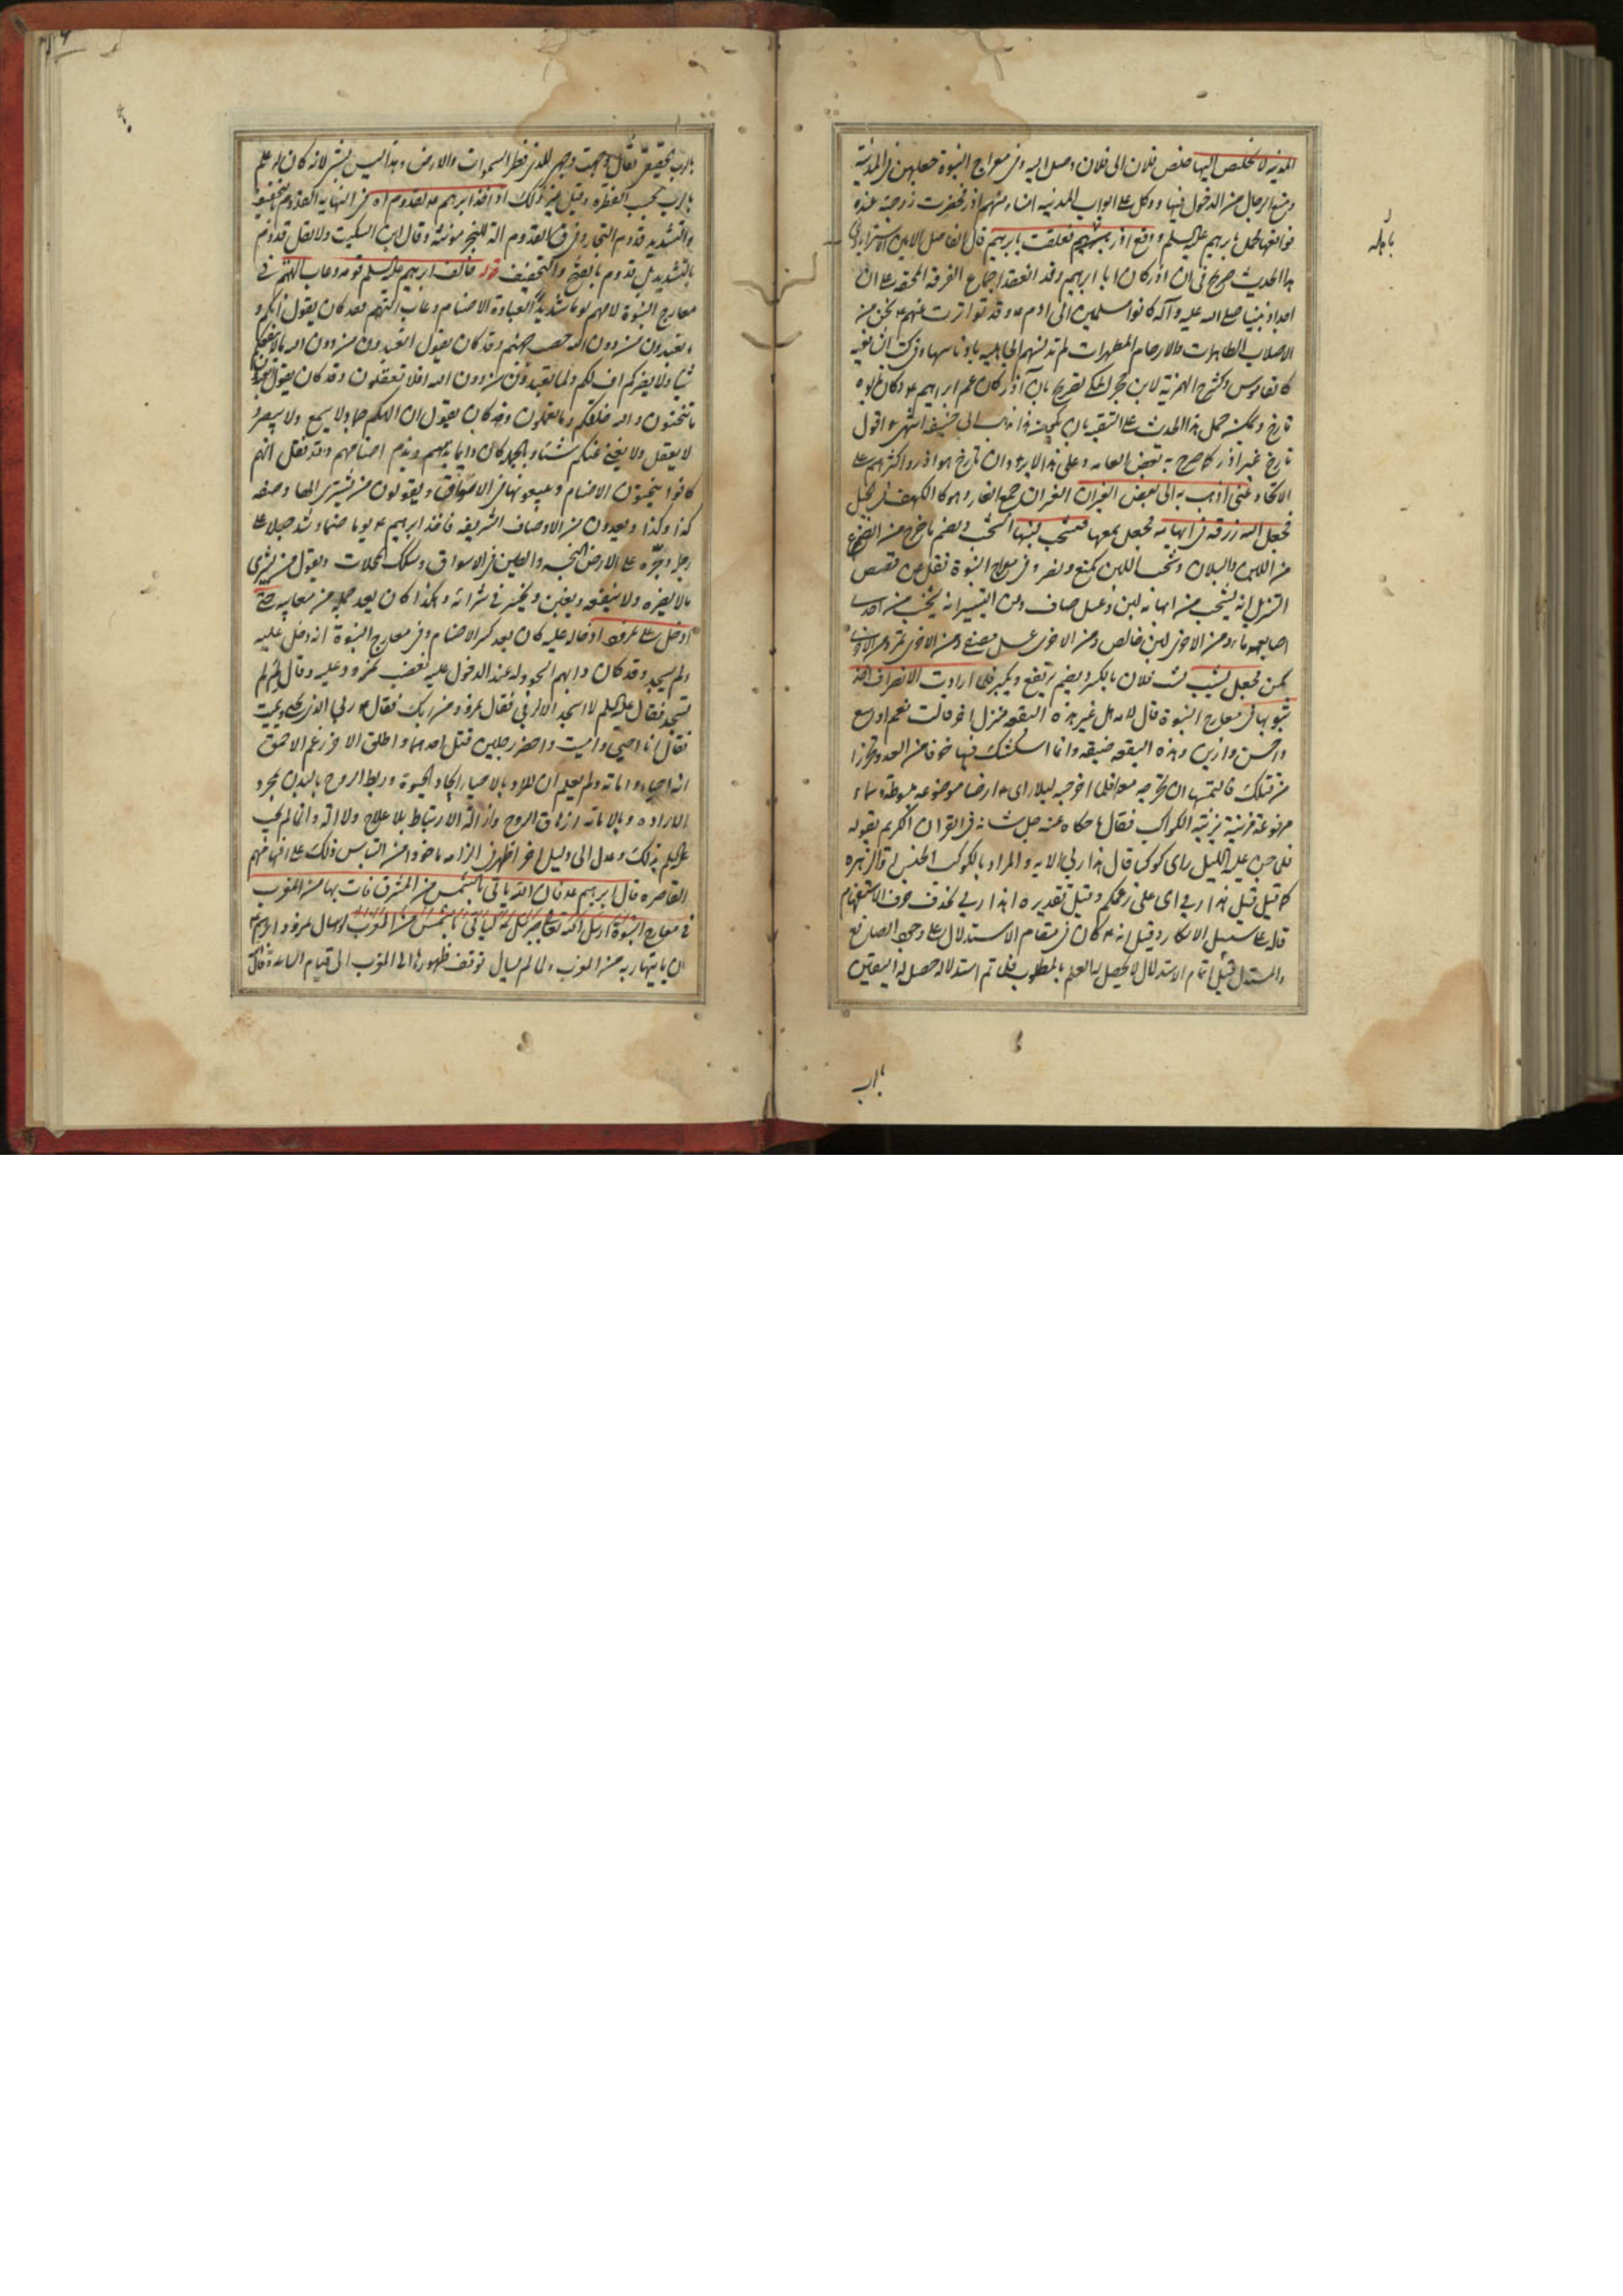 المدينة لا يخلص اليها خلص فلان الى فلان وصل اليه وفى معراج النبوة جعلهن فى المدينة
ومنع الرجال من الدخول فيها ووكل على ابواب المدينة امناء منهم اذر فحضرت زوجته عنده
فواقعها فحمل بابرهيم عليه السلم ووقع اذر فعلقت بابرهيم قال الفاضل الامين الاسترابادى
هذا الحديث صريح فى ان اذر كان ابا ابرهيم وقد انعقد اجماع الفرقة المحقة على ان
اجداد نبينا صلى الله عليه وآله كانوا مسلمين الى ادم ع وقد تواترت عنهم ع نحن من
الاصلاب الطاهرات والارحام المطهرات لم تدنسهم الجاهلية بادناسها وفى كتب الشافعية
كالقاموس وكشرح الهمزية لابن حجر المكى تصريح بان آذر كان عم ابراهيم ع وكان ابوه
تارخ ويمكن حمل هذا الحديث على التقية بان يكون هذا مذهب ابى حنيفة انتهى اقول
تارخ غير اذر كما صرح به بعض العامة وعلى هذا لا يرد وان تارخ هو اذر واكثرهم على
الاتحاد عنى اذهب به الى بعض الغيران الغيران جمع الغار وهو كالكهف فى الجبل
فجعل الله رزقه فى ابهامه فجعل يمصها فتشخب لبنها الشخب ويضم ما خرج من الضرع
من اللبن وشخب اللبن كمنع ونصر وفى معارج النبوة نقل عن قصص
التنزيل انه يشخب من ابهامه لبن وعسل صاف وعن التيسير انه يشخب من احدى
اصابعه ماء ومن الاخرى لبن خالص ومن الاخرى عسل مصفى ومن الاخرى تمر ومن الاخرى
سمن فجعل يشب شب فلان بالكسر ويضم يرتفع ويكبر فلما ارادت الانصراف اخذ
بثوبها فى معارج النبوة قال لامه هل غير هذه البقعة منزل اخر قالت نعم اوسع
واحسن وازين وهذه البقعة ضيقة وانما اسكنتك فيها خوفا من العدو وتحرزا
من قتلك فالتمسها ان تخرجه معها فلما اخرجته ليلا راى ع ارضا موضوعة مبسوطة وسماء
مرفوعة مزينة بزينة الكواكب فقال ما حكاه عنه جل شانه فى القران الكريم بقوله
فلما جن عليه الليل راى كوكبا قال هذا ربى الاية والمراد بالكوكب الجنس او الزهرة
كما قيل قيل هذا ربى اى على زعمكم وقيل تقديره اهذا ربى بحذف حرف الاستفهام
قاله على سبيل الانكار وقيل انه ع كان فى مقام الاستدلال على وجود الصانع
والمستدل قبل اتمام الاستدلال لا يحصل له العلم بالمطلوب فلما تم استدلاله حصل له اليقين
بابويه
بارب
بارب بحقيق فقال وجهت وجهى للذى فطر السموات والارض وهذا ليس بشىء لانه كان له علم
بارب بحسب الفطرة وقيل غير ذلك اذ اخذ ابرهيم ع القدوم اه فى النهاية القدوم بالتخفيف
والتشديد قدوم النجار وفى ق القدوم الة للنجر مؤنثة وقال ابن السكيت ولا يقل قدوم
بالتشديد بل قدوم بالفتح والتخفيف قوله خالف ابرهيم عليه السلم قومه وعاب الهتهم فى
معارج النبوة لامهم لوما شديدا لعبادة الاصنام وعاب الهتهم فقد كان يقول انكم و
ما تعبدون من دون الله حصب جهنم وقد كان يقول اتعبدون من دون الله ما لا ينفعكم
شيئا ولا يضركم اف لكم ولما تعبدون من دون الله افلا تعقلون وقد كان يقول اتعبدون
ما تنحتون والله خلقكم وما تعملون وقد كان يقول ان الهكم جماد لا يسمع ولا يبصر و
لا يعقل ولا يغنى عنكم شيئا وبالجملة كان دايما يذمهم ويذم اصنامهم وقد نقل انهم
كانوا ينحتون الاصنام ويبيعونها فى الاسواق ويقولون من يشترى الها وصفه
كذا وكذا ويعدون من الاوصاف الشريفة فاخذ ابرهيم ع يوما صنما وشد حبلا على
رجله وجره على الارض النجسة والطين فى الاسواق وسكك المحلات ويقول من يشترى
ما لا يضره ولا ينفعه ويغبن ويخسر فى شرائه وهكذا كان يعد جملة من معايبه حتى
ادخل على نمرود ادخاله عليه كان بعد كسر الاصنام وفى معارج النبوة انه دخل عليه
ولم يسجد وقد كان دابهم السجود له عند الدخول عليه فغضب نمرود عليه وقال لم لم
تسجد فقال عليه السلم لا اسجد الا لربى فقال نمرود من ربك فقال ع ربى الذى يحيى ويميت
فقال انا احيى واميت واحضر رجلين قتل احدهما واطلق الاخر زعم الاحمق
انه احياء واماتة ولم يعلم ان المراد بالاحياء ايجاد الحيوة وربط الروح بالبدن بمجرد
الارادة وبالاماتة ازهاق الروح وازالة الارتباط بلا علاج ولا الة وانما لم يجب
عليه السلم بذلك وعدل الى دليل اخر اظهر فى الزامه ماخوذا من التباس ذلك على افهامهم
القاصرة قال ابرهيم ع فان الله ياتى بالشمس من المشرق فات بها من المغرب
فى معارج النبوة ارسل الله تعالى جبرئيل بانه لياتى بالشمس من المغرب لو سال نمرود ابرهيم
ان ياتيها ربه من المغرب ولما لم يسال توقف ظهورها الى المغرب الى قيام الساعة وقال